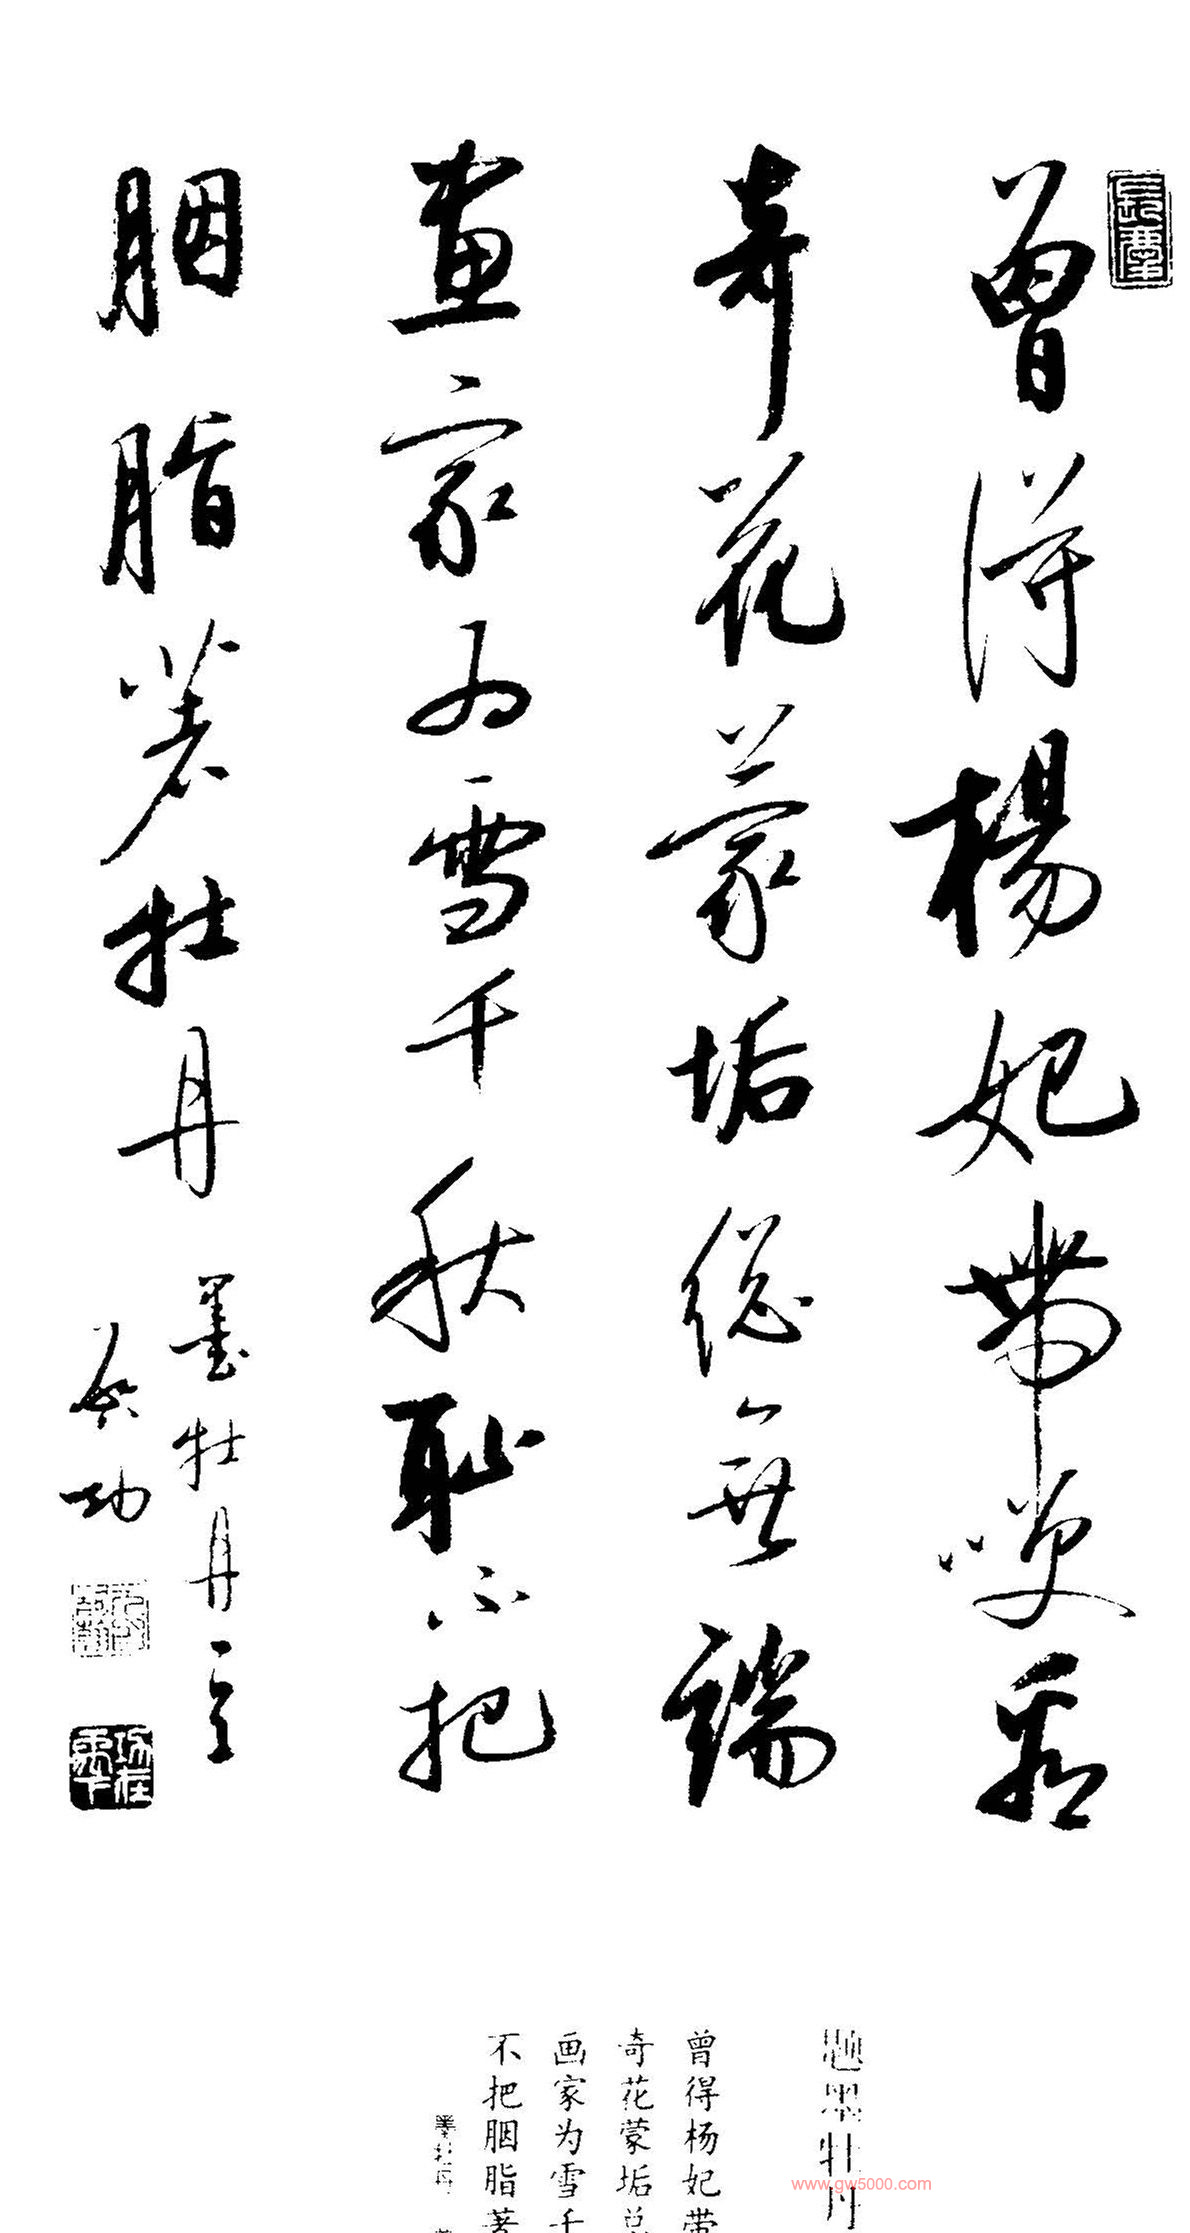 曾得楊妃帶笑看
奇花蒙垢總無端
畫家为雪千秋恥不把
胭脂著牡丹
墨牡丹一首
啟功
功在禹下
题墨牡丹
曾得杨妃带
奇花蒙垢总
画家为雪千
不把胭脂著
墨牡丹
www.gw5000.com